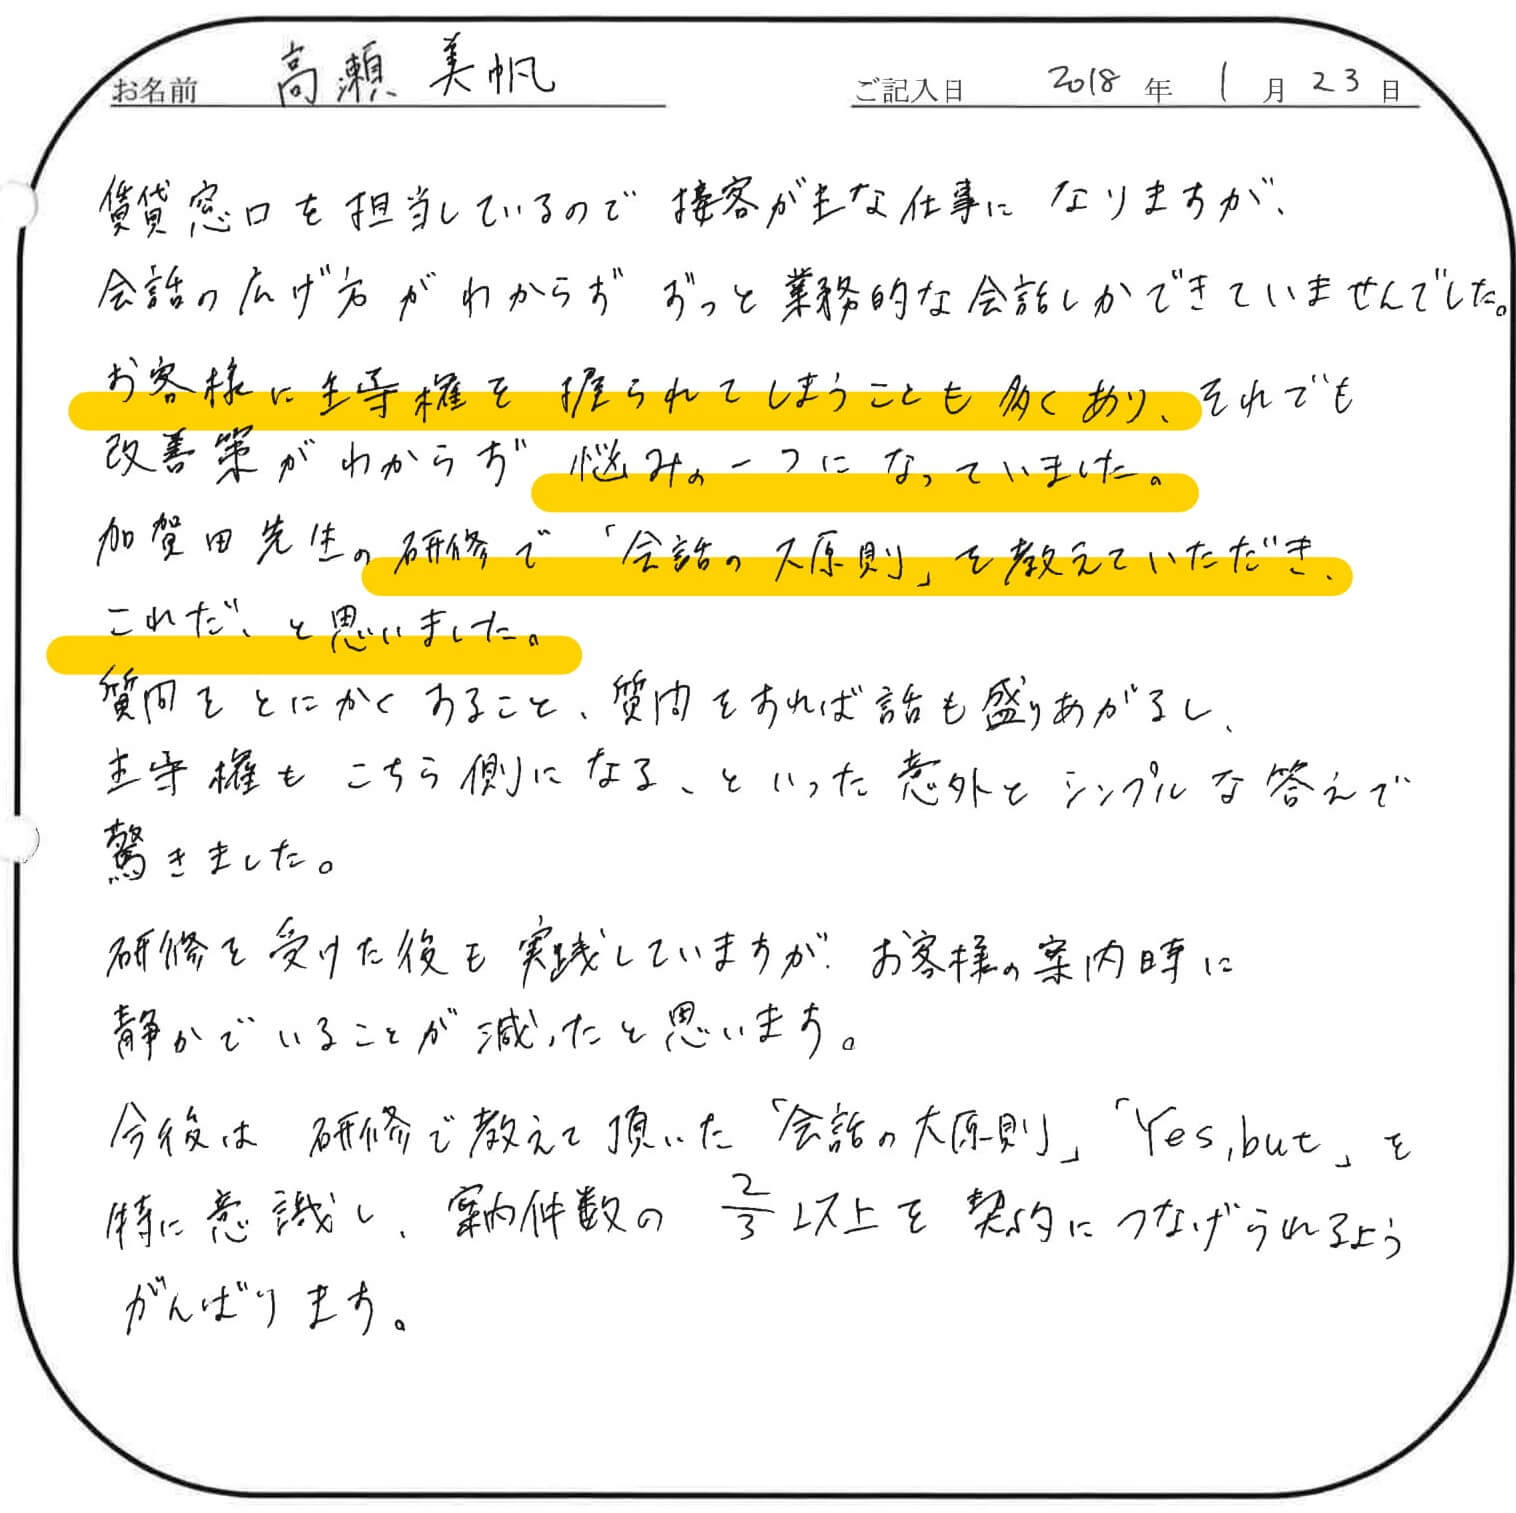 お名前 高瀬 美帆 ご記入日 2018 年 1 月 23 日
賃貸窓口を担当しているので接客が主な仕事になりますが、
会話の広げ方がわからず ずっと業務的な会話しかできていませんでした。
お客様に主導権を握られてしまうことも多くあり、それでも
改善策がわからず 悩みの一つになっていました。
加賀田先生の研修で「会話の大原則」を教えていただき、
これだ、と思いました。
質問をとにかくすること、質問をすれば話も盛りあがるし、
主導権もこちら側になる、といった意外とシンプルな答えで
驚きました。
研修を受けた後も実践していますが、お客様の案内時に
静かでいることが減ったと思います。
今後は 研修で教えて頂いた「会話の大原則」「Yes,but」を
特に意識し、案内件数の 2/3 以上を契約につなげられるよう
がんばります。